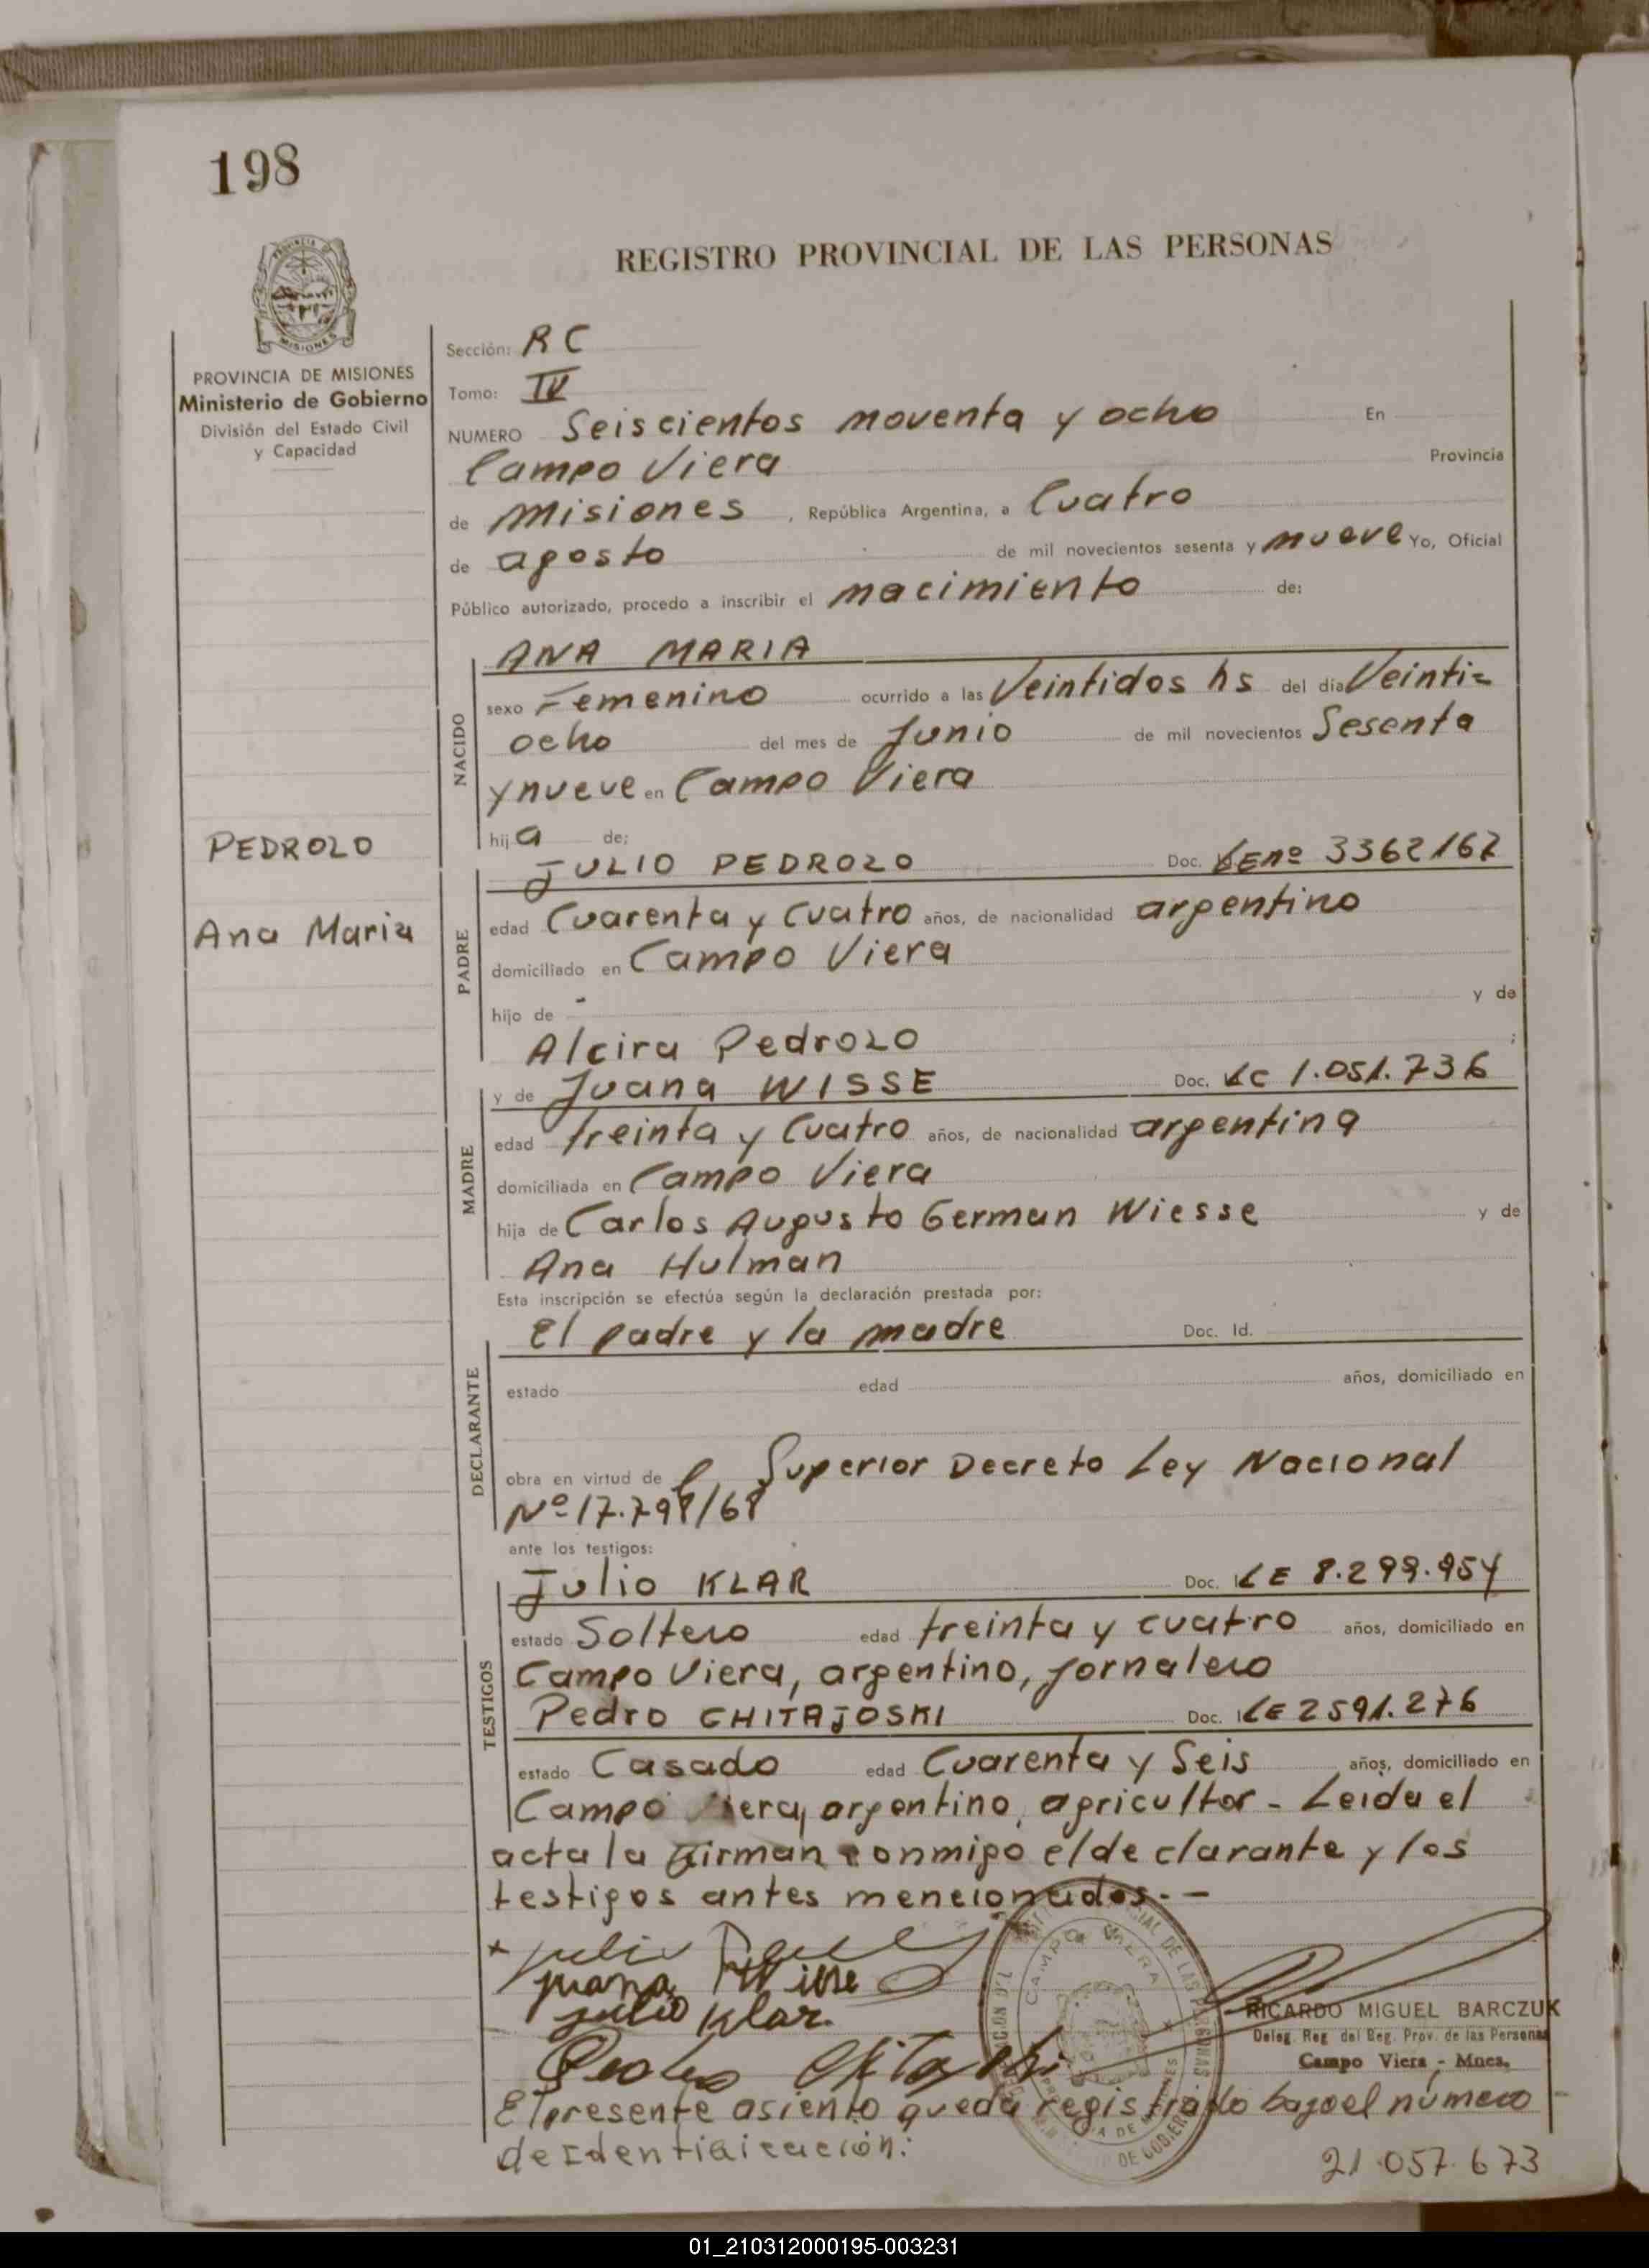 198
REGISTRO PROVINCIAL DE LAS PERSONAS
PROVINCIA DE MISIONES
Ministerio de Gobierno
División del Estado Civil
y Capacidad
Sección: RC
Tomo: IV
NUMERO Seiscientos noventa y ocho En
Campo Viera Provincia
de Misiones, República Argentina, a Cuatro
de agosto de mil novecientos sesenta y nueve Yo, Oficial
Público autorizado, procedo a inscribir el nacimiento de:
NACIDO
ANA MARIA
sexo Femenino ocurrido a las Veintidos hs del día Veinti=
ocho del mes de Junio de mil novecientos Sesenta
y nueve en Campo Viera
hija de;
PEDROZO
Ana Maria
PADRE
JULIO PEDROZO Doc. LE nº 3362167
edad Cuarenta y Cuatro años, de nacionalidad argentino
domiciliado en Campo Viera
hijo de - y de
Alcira Pedrozo ;
MADRE
y de Juana WISSE Doc. LC 1.051.736
edad treinta y Cuatro años, de nacionalidad argentina
domiciliada en Campo Viera
hija de Carlos Augusto German Wiesse y de
Ana Hulman
Esta inscripción se efectúa según la declaración prestada por:
DECLARANTE
El padre y la madre Doc. Id.
estado edad años, domiciliado en
obra en virtud de Superior Decreto Ley Nacional
Nº 17.798/68
ante los testigos:
TESTIGOS
Julio KLAR Doc. LE 8.299.954
estado Soltero edad treinta y cuatro años, domiciliado en
Campo Viera, argentino, jornalero
Pedro CHITAJOSKI Doc. LE 2591.276
estado Casado edad Cuarenta y Seis años, domiciliado en
Campo Viera, argentino, agricultor - Leida el
acta la firman conmigo el declarante y los
testigos antes mencionados.-
Julio
Juana Wisse
Julio Klar.
Pedro
CAMPO VIERA
RICARDO MIGUEL BARCZUK
Deleg. Reg. del Reg. Prov. de las Personas
Campo Viera - Mnes.
El presente asiento queda registrado bajo el número
de Identificación:
21.057.673
01_210312000195-003231